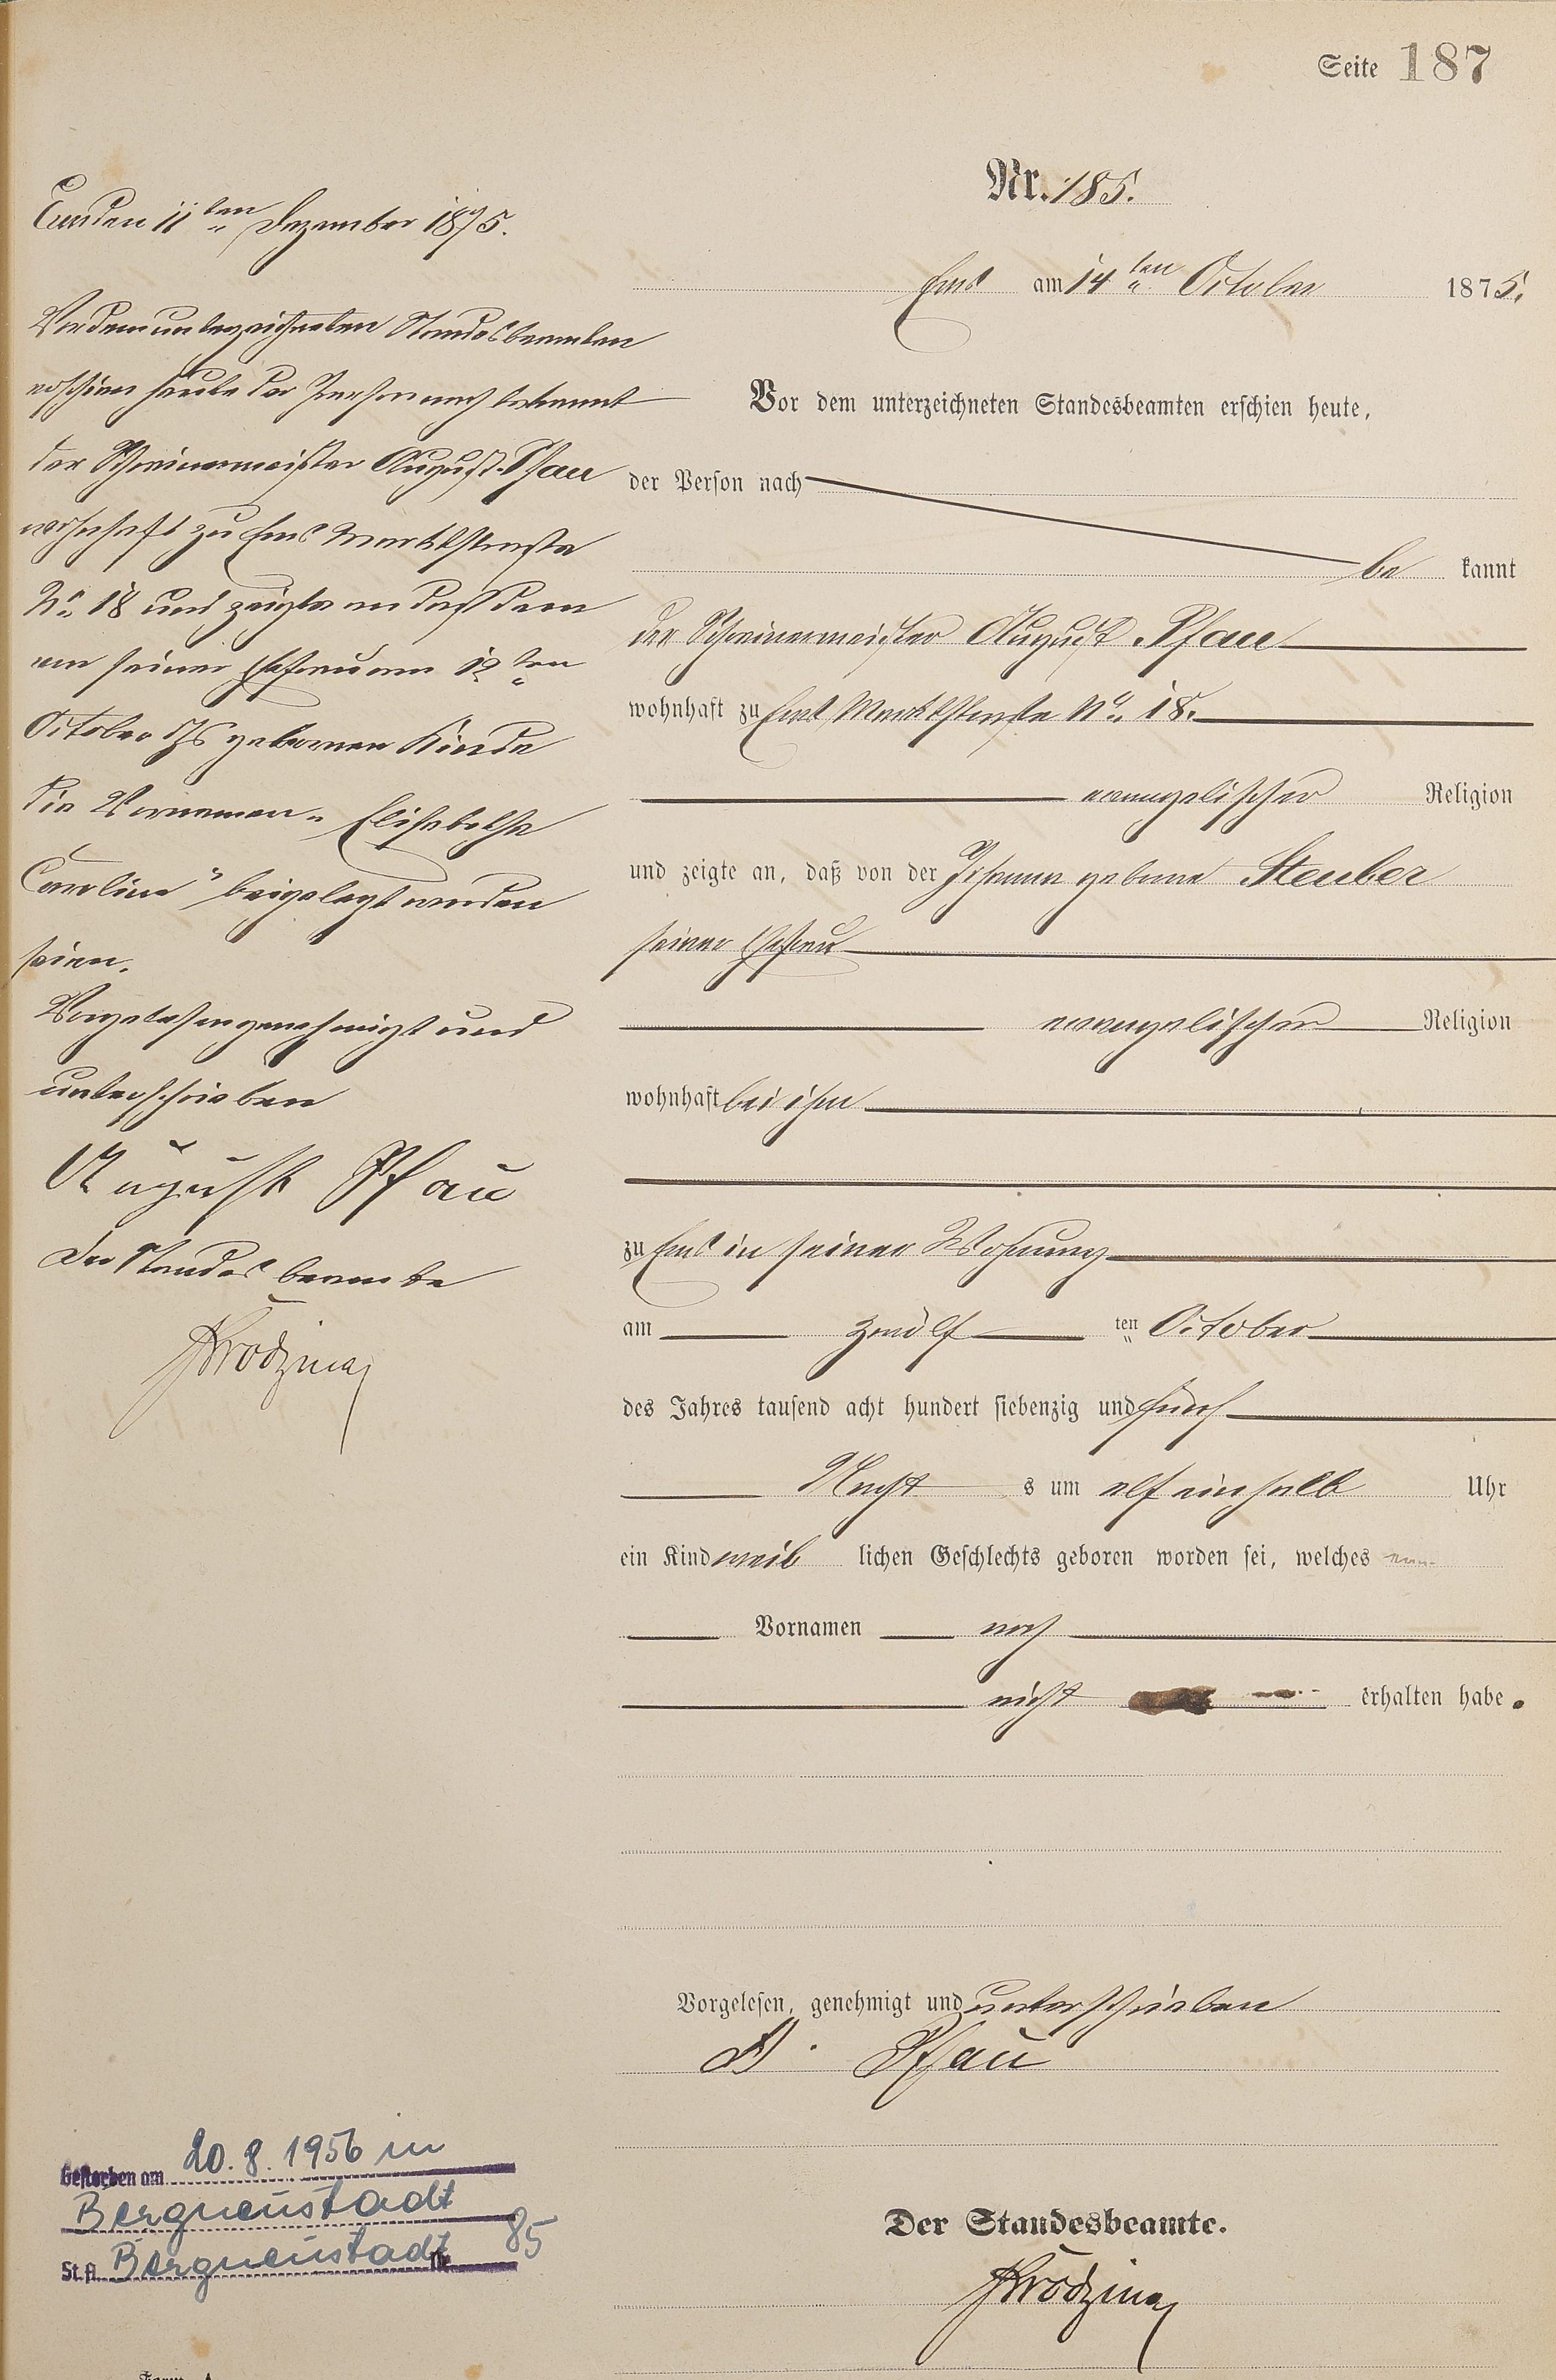 Seite 187
Nr. 185.
Ems am 14ten October 1875.
Vor dem unterzeichneten Standesbeamten erschien heute,
der Person nach
be kannt
der Schreinermeister August Pfau
wohnhaft zu Ems Marktstraße No. 18.
evangelischer Religion
und zeigte an, daß von der Johanna geborne Steuber
seiner Ehefrau
evangelischer Religion
wohnhaft bei ihm
zu Ems in seiner Wohnung
am zwölf ten October
des Jahres tausend acht hundert siebenzig und fünf
Nacht s um elf einhalb Uhr
ein Kind weib lichen Geschlechts geboren worden sei, welches
Vornamen noch
nicht erhalten habe.
Vorgelesen, genehmigt und unterschrieben
A. Pfau
Der Standesbeamte.
den 11ten Dezember 1875.
Vor dem unterzeichneten Standesbeamten
erschien heute der Person nach bekannt
der Schreinermeister August Pfau
wohnhaft zu Ems Marktstraße
No. 18 und zeigte an daß dem
von seiner Ehefrau am 12ten
October geborenen Kinde
die Vornamen „Elisabetha
Caroline“ beigelegt worden
seien.
Vorgelesen genehmigt und
unterschrieben
August Pfau
Der Standesbeamte
Gestorben am 20.8.1956 in
Bergneustadt
St.A. Bergneustadt Nr. 85
Form. A